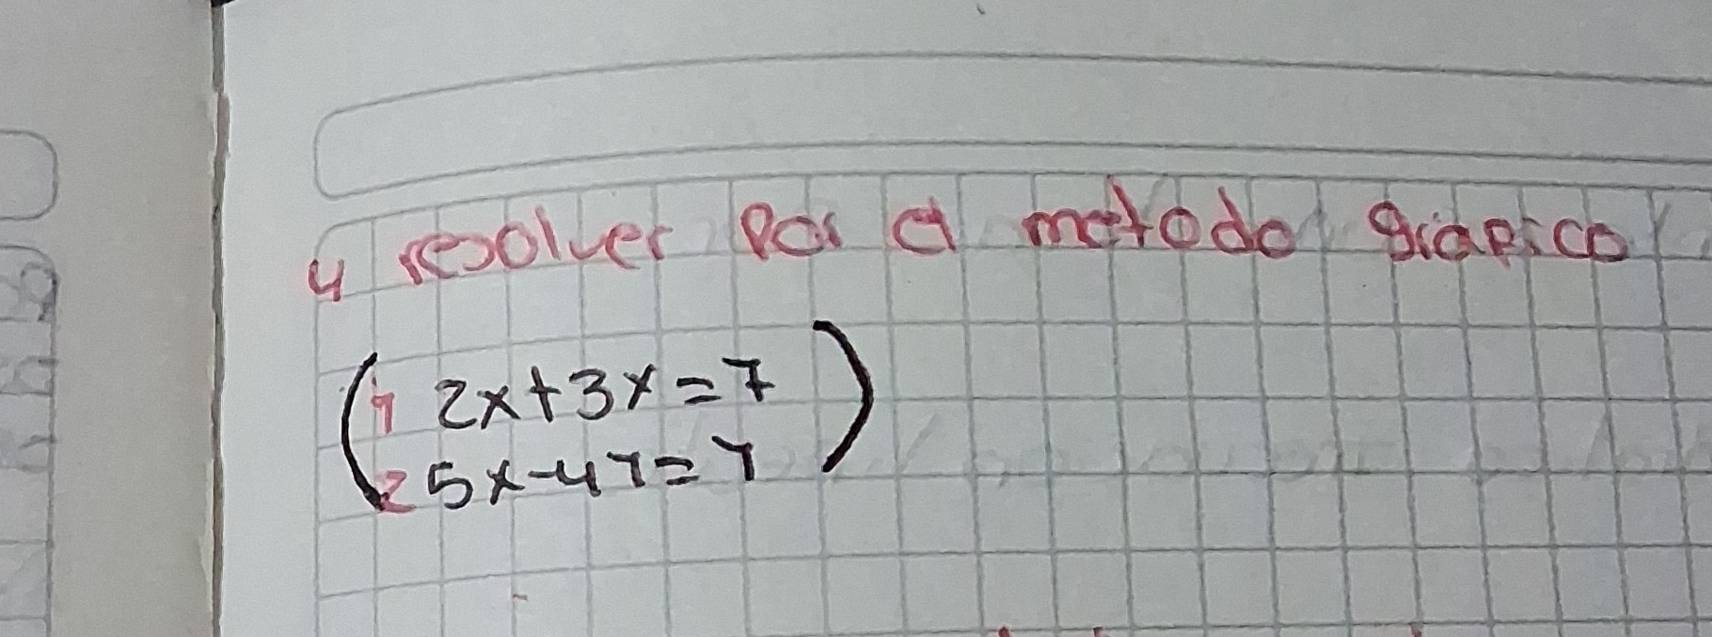 4 resolver por el metodo grafico
1 2x+3x=7
2 5x-4y=y